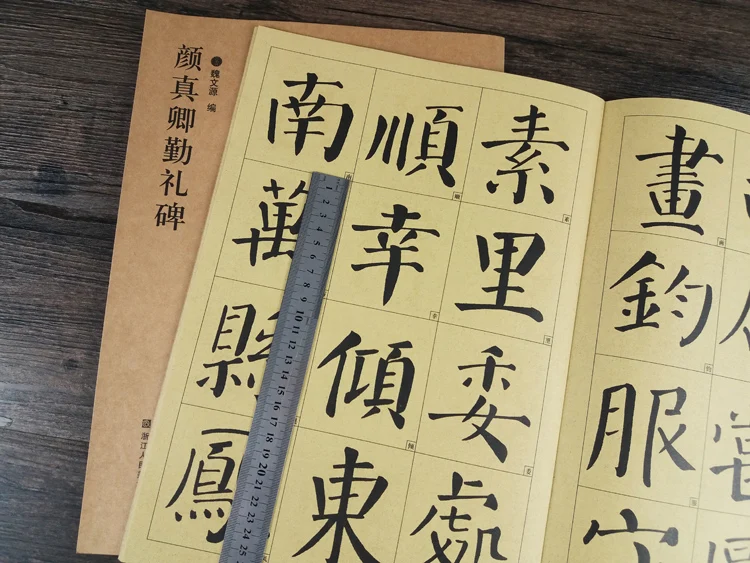 颜真卿勤礼碑
魏文源 编
浙江人民
畫鈞服
素里委處
順幸傾東
南萬縣鳳
1 2 3 4 5 6 7 8 9 10 11 12 13 14 15 16 17 18 19 20 21 22 23 24 25